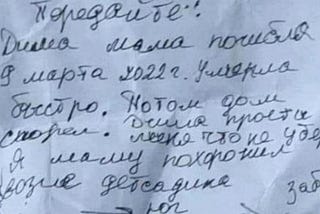 Передайте!!
Дима мама погибла
9 марта 2022г. Умерла
быстро. Потом дом
сгорел. Дима прости
меня что не убер
Я маму похоронил
возле детсадика
юг заб